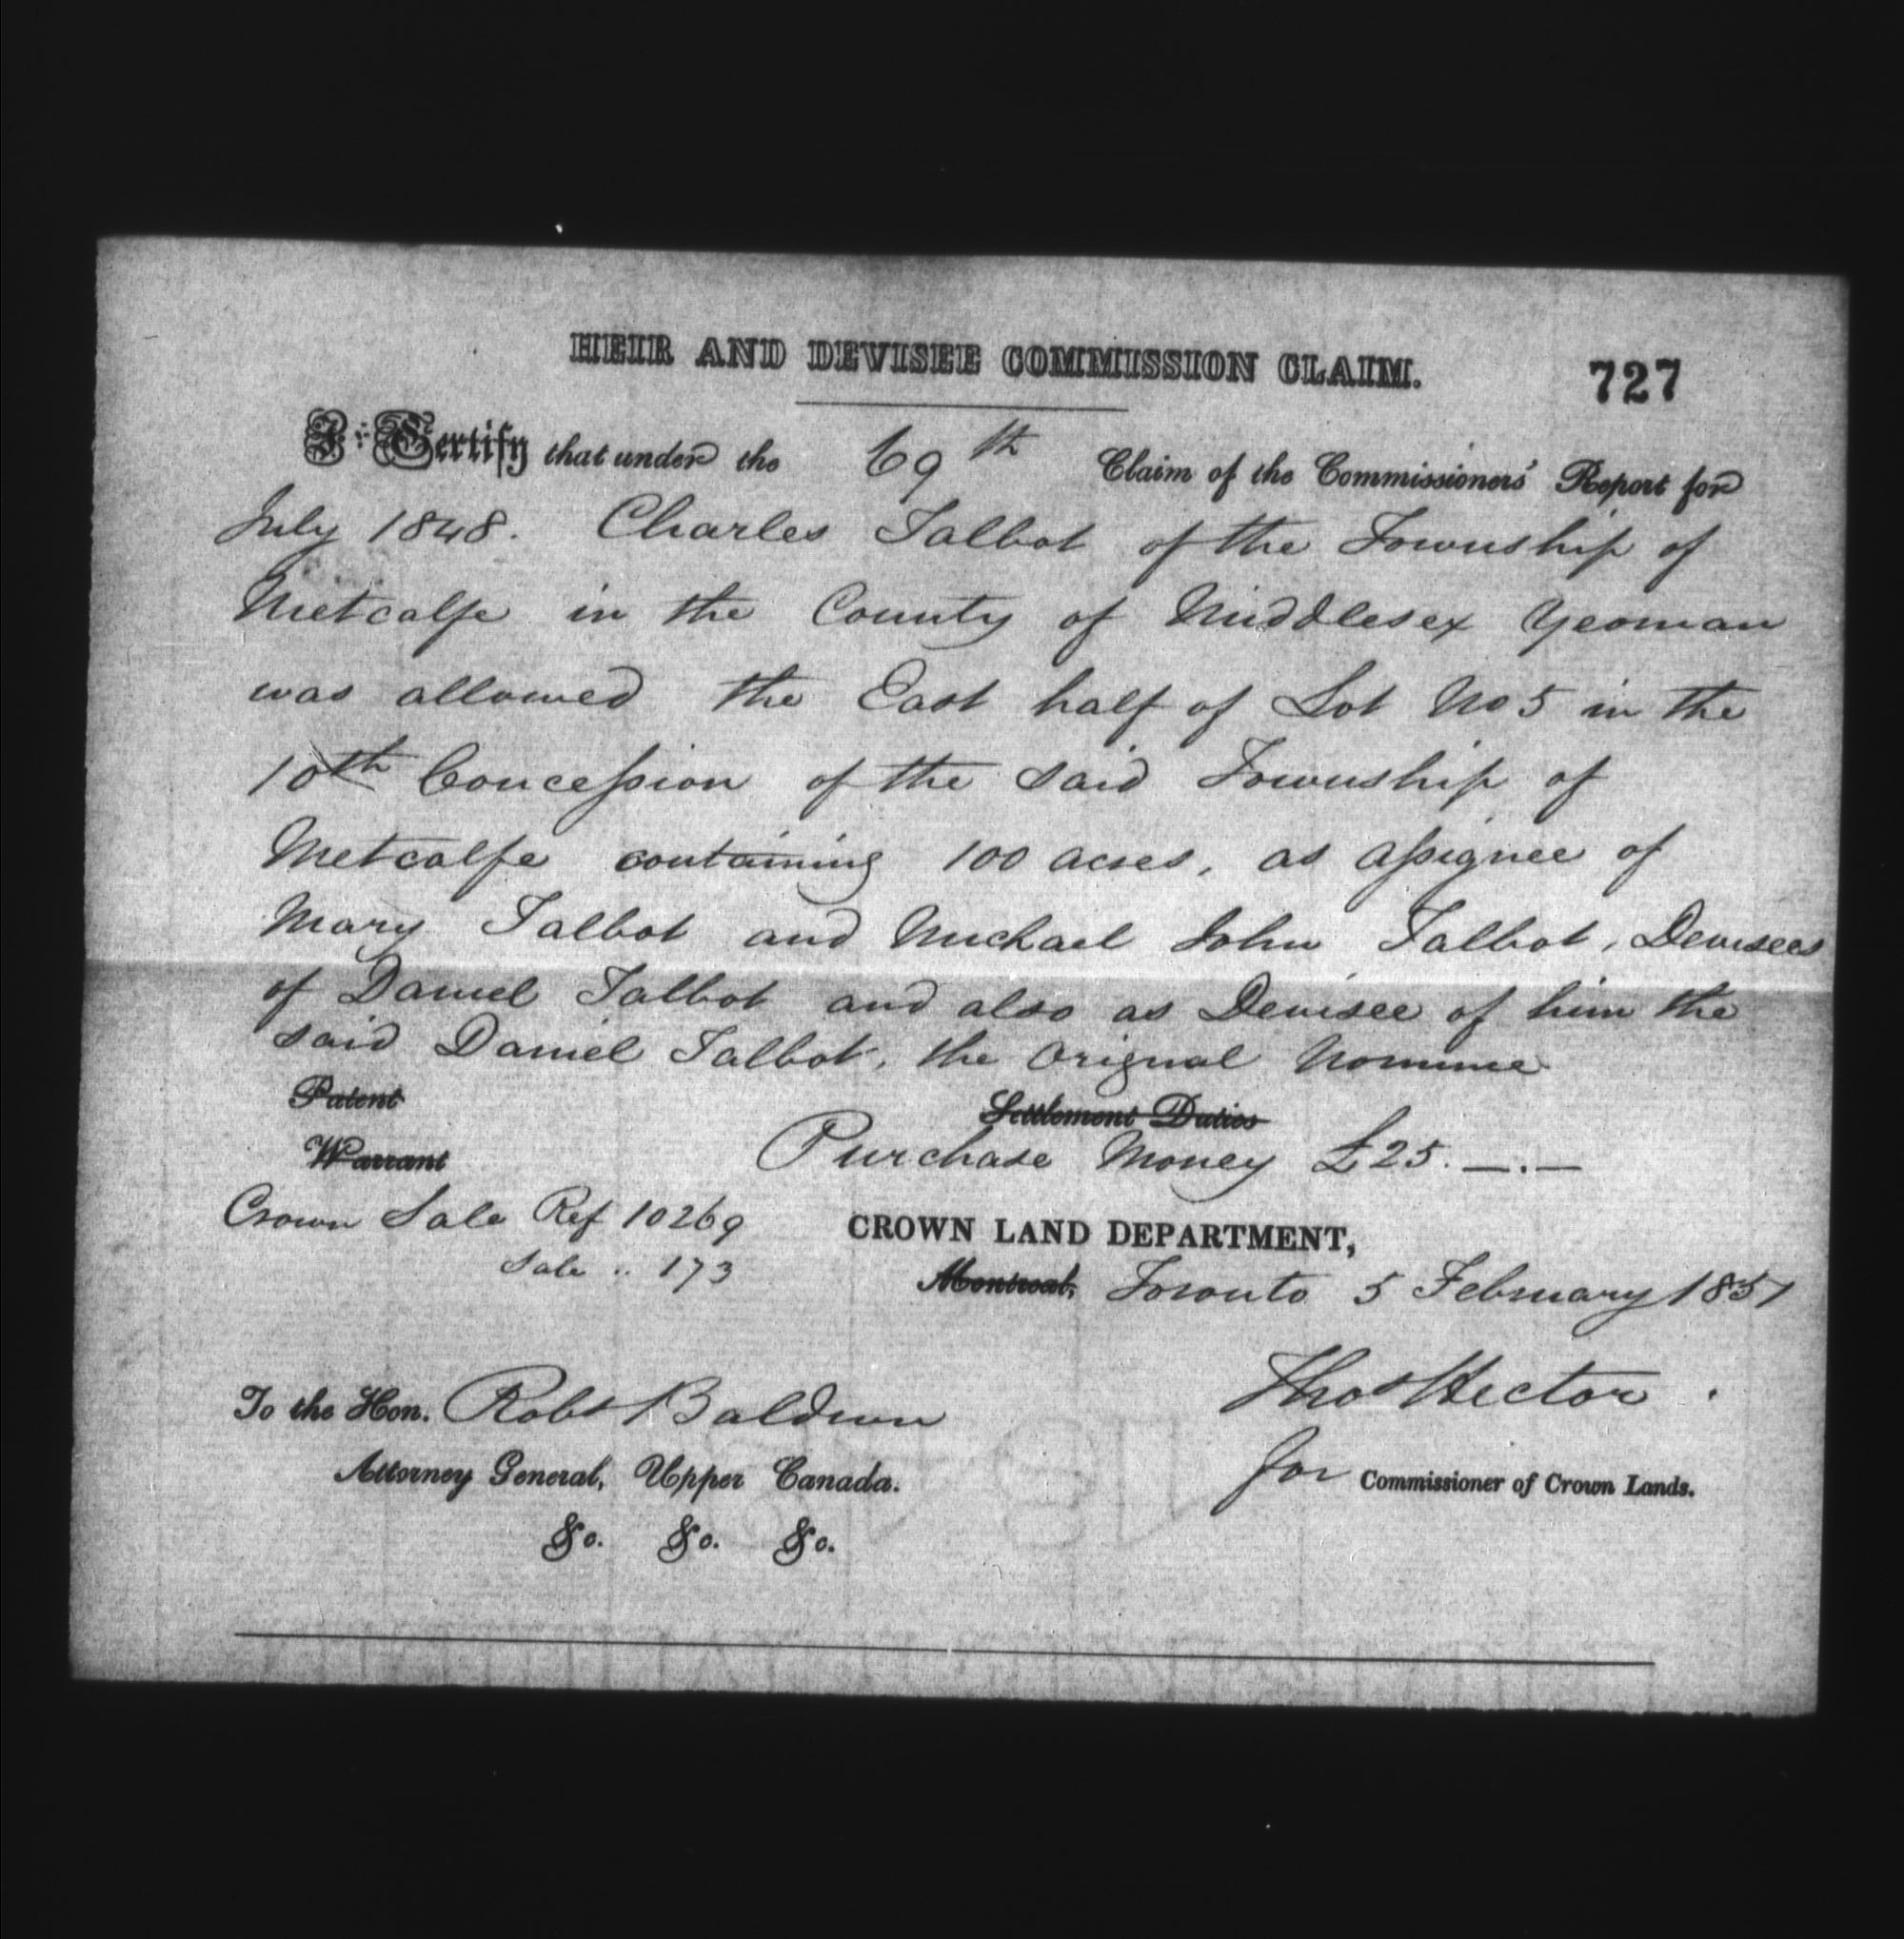 HEIR AND DEVISEE COMMISSION CLAIM. 727
I Certify that under the 69th Claim of the Commissioners' Report for
July 1848. Charles Talbot of the Township of
Metcalfe in the County of Middlesex Yeoman
was allowed the East half of Lot No 5 in the
10th Concession of the said Township of
Metcalfe containing 100 acres, as assignee of
Mary Talbot and Michael John Talbot, Devisees
of Daniel Talbot and also as Devisee of him the
said Daniel Talbot, the Original Nominee
Patent Settlement Duties
Warrant Purchase Money £25. —.—
Crown Sale Ref 10269 CROWN LAND DEPARTMENT,
Sale .. 173 Montreal, Toronto 5 February 1851
To the Hon. Robt Baldwin Thos Hector
Attorney General, Upper Canada. for Commissioner of Crown Lands.
&c. &c. &c.